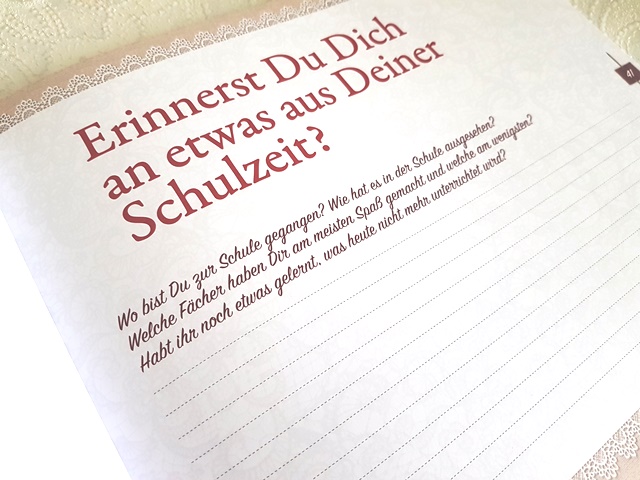 Erinnerst Du Dich
an etwas aus Deiner
Schulzeit?
Wo bist Du zur Schule gegangen? Wie hat es in der Schule ausgesehen?
Welche Fächer haben Dir am meisten Spaß gemacht und welche am wenigsten?
Habt ihr noch etwas gelernt, was heute nicht mehr unterrichtet wird?